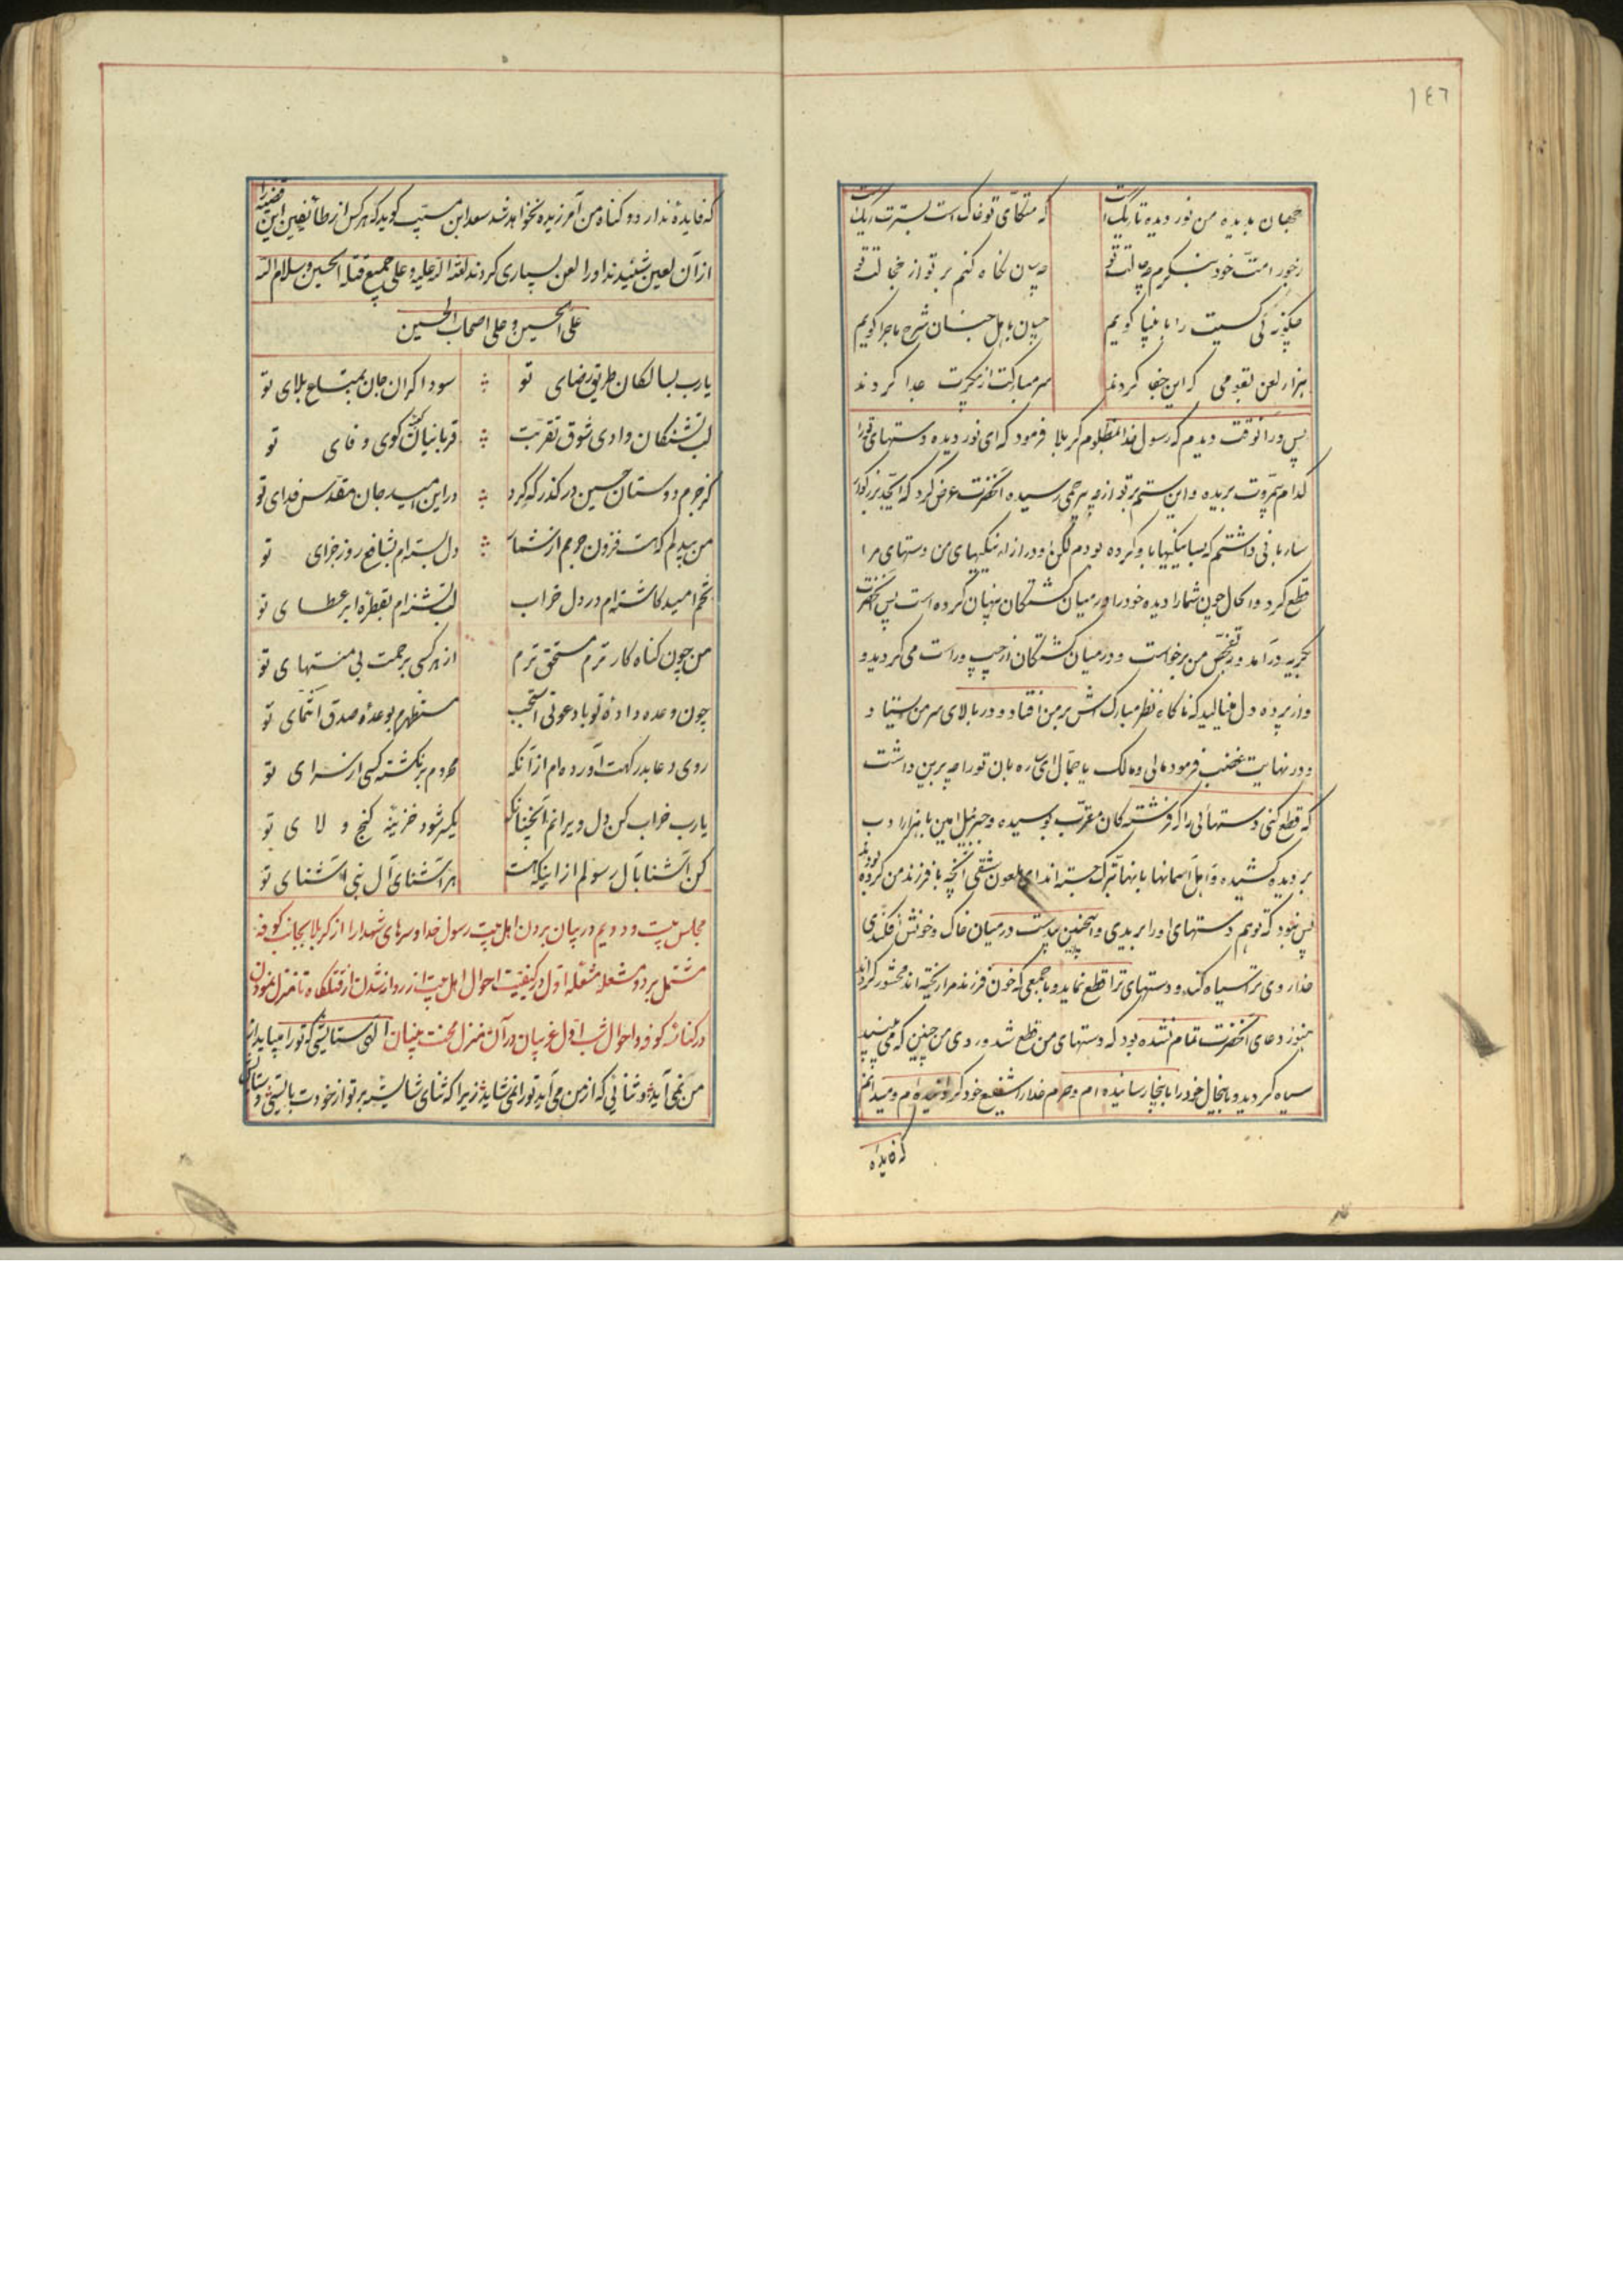 ١٤٦
جهان بدیده من نور دیده تاریک است که متکای تو خاک است بسترت ریک است
ز جور امت خود بنکرم چه حالت تو چه سان نکاه کنم بر تو از خجالت تو
چکونه بی کسیت را بانبیا کویم چسان باهل جنان شرح ماجرا کویم
هزار لعن بقومی که این جفا کردند سر مبارکت از پیکرت جدا کردند
پس در آنوقت دیدم که رسول خدا بمظلوم کربلا فرمود که ای نور دیده دستهای تورا
کدام بیمروت بریده و این ستم بر تو از چه بیرحمی رسیده آنحضرت عرض کرد که ایجد بزرکوار
ساربانی داشتم که بسا نیکیها باو کرده بودم لکن او در ازاء نیکیهای من دستهای مرا
قطع کرد و الحال چون شما را دیده خود را در میان کشتکان پنهان کرده است پس آنحضرت
بکریه درآمد و بتفحص من برخواست و در میان کشتکان از چپ و راست می کردید و
و از پرده دل مینالید که ناکاه نظر مبارکش بر من افتاد و در بالای سر من ایستاد
و در نهایت غضب فرمود مالی و مالک یا جمال ای ساربان تورا چه بر این داشت
که قطع کنی دستهائی را که فرشتکان مقرب بوسیده و جبرئیل امین با هزار ادب
بر دیده کشیده و اهل آسمانها بانها تبرک جسته اند ای ملعون شقی آنچه با فرزند من کرده بودند
بس نبود که تو هم دستهای او را بریدی و اینچنین بیدست در میان خاک و خونش افکندی
خدا روی ترا سیاه کند و دستهای ترا قطع نماید و با جمعی که خون فرزند مرا ریخته اند محشور کرداند
هنوز دعای آنحضرت تمام نشده بود که دستهای من قطع شد و روی من چنین که می بینید
سیاه کردید و باینحال خود را باینجا رسانیده ام و حرم خدا را شفیع خود کردانیده ام و میدانم
که فایده
که فایدهٔ ندارد و کناه من آمرزیده نخواهد شد سعد ابن مسیب کوید که هر کس از طائفین این قضیه را
از آن لعین شنیدند او را لعن بسیاری کردند لعنة الله علیه و علی جمیع قتلة الحسین و سلام الله
علی الحسین و علی اصحاب الحسین
یارب بسالکان طریق رضای تو سوداکران جان بمتاع بلای تو
لب تشنکان وادی شوق تقربت قربانیان کوی وفای تو
کز جرم دوستان حسین در کذر که کرد در این امید جان مقدس فدای تو
من بیدلم که هست فزون جرمم از شمار دل بسته ام بشافع روز جزای تو
تخم امید کاشته ام در دل خراب لب تشنه ام بقطره ابر عطای تو
من چون کناه کار ترم مستحق ترم از هر کسی برحمت بی منتهای تو
چون وعده دادهٔ تو بادعونی استجب مستظهرم بوعدهٔ صدق انتمای تو
روی دعا بدرکهت آورده ام از آنکه محروم برنکشته کسی از سرای تو
یارب خراب کن دل ویرانم آنچنانکه یکسر شود خزینه کنج ولای تو
کن آشنا بآل رسولم از اینکه هست هر آشنای آل نبی آشنای تو
مجلس بیست و دویم در بیان بردن اهل بیت رسول خدا و سرهای شهدا را از کربلا بجانب کوفه
مشتمل بر دو مشعله مشعله اول در کیفیت احوال اهل بیت از روانه شدن از قتلکاه تا منزل نمودن
در کناسه کوفه و احوال شب اول غریبان در آن منزل محنت بنیان الهی ستایشی که تو را میباید از
من نمی آید و ثنائی که از من می آید تورا نمی شاید زیرا که ثنای شایسته بر تو از خودت بایستی